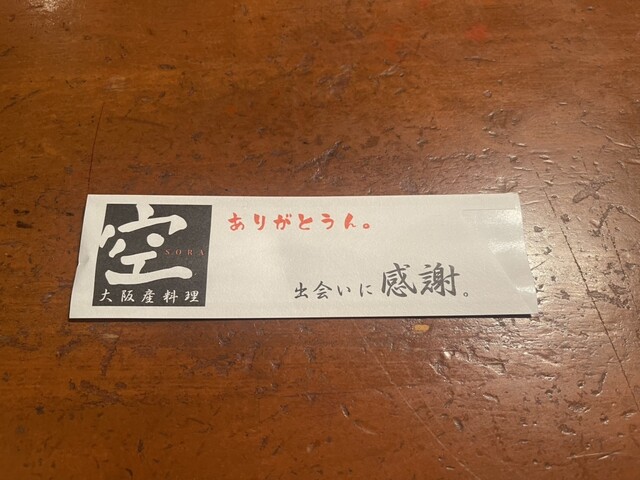 空
SORA
大阪産料理
ありがとうん。
出会いに感謝。